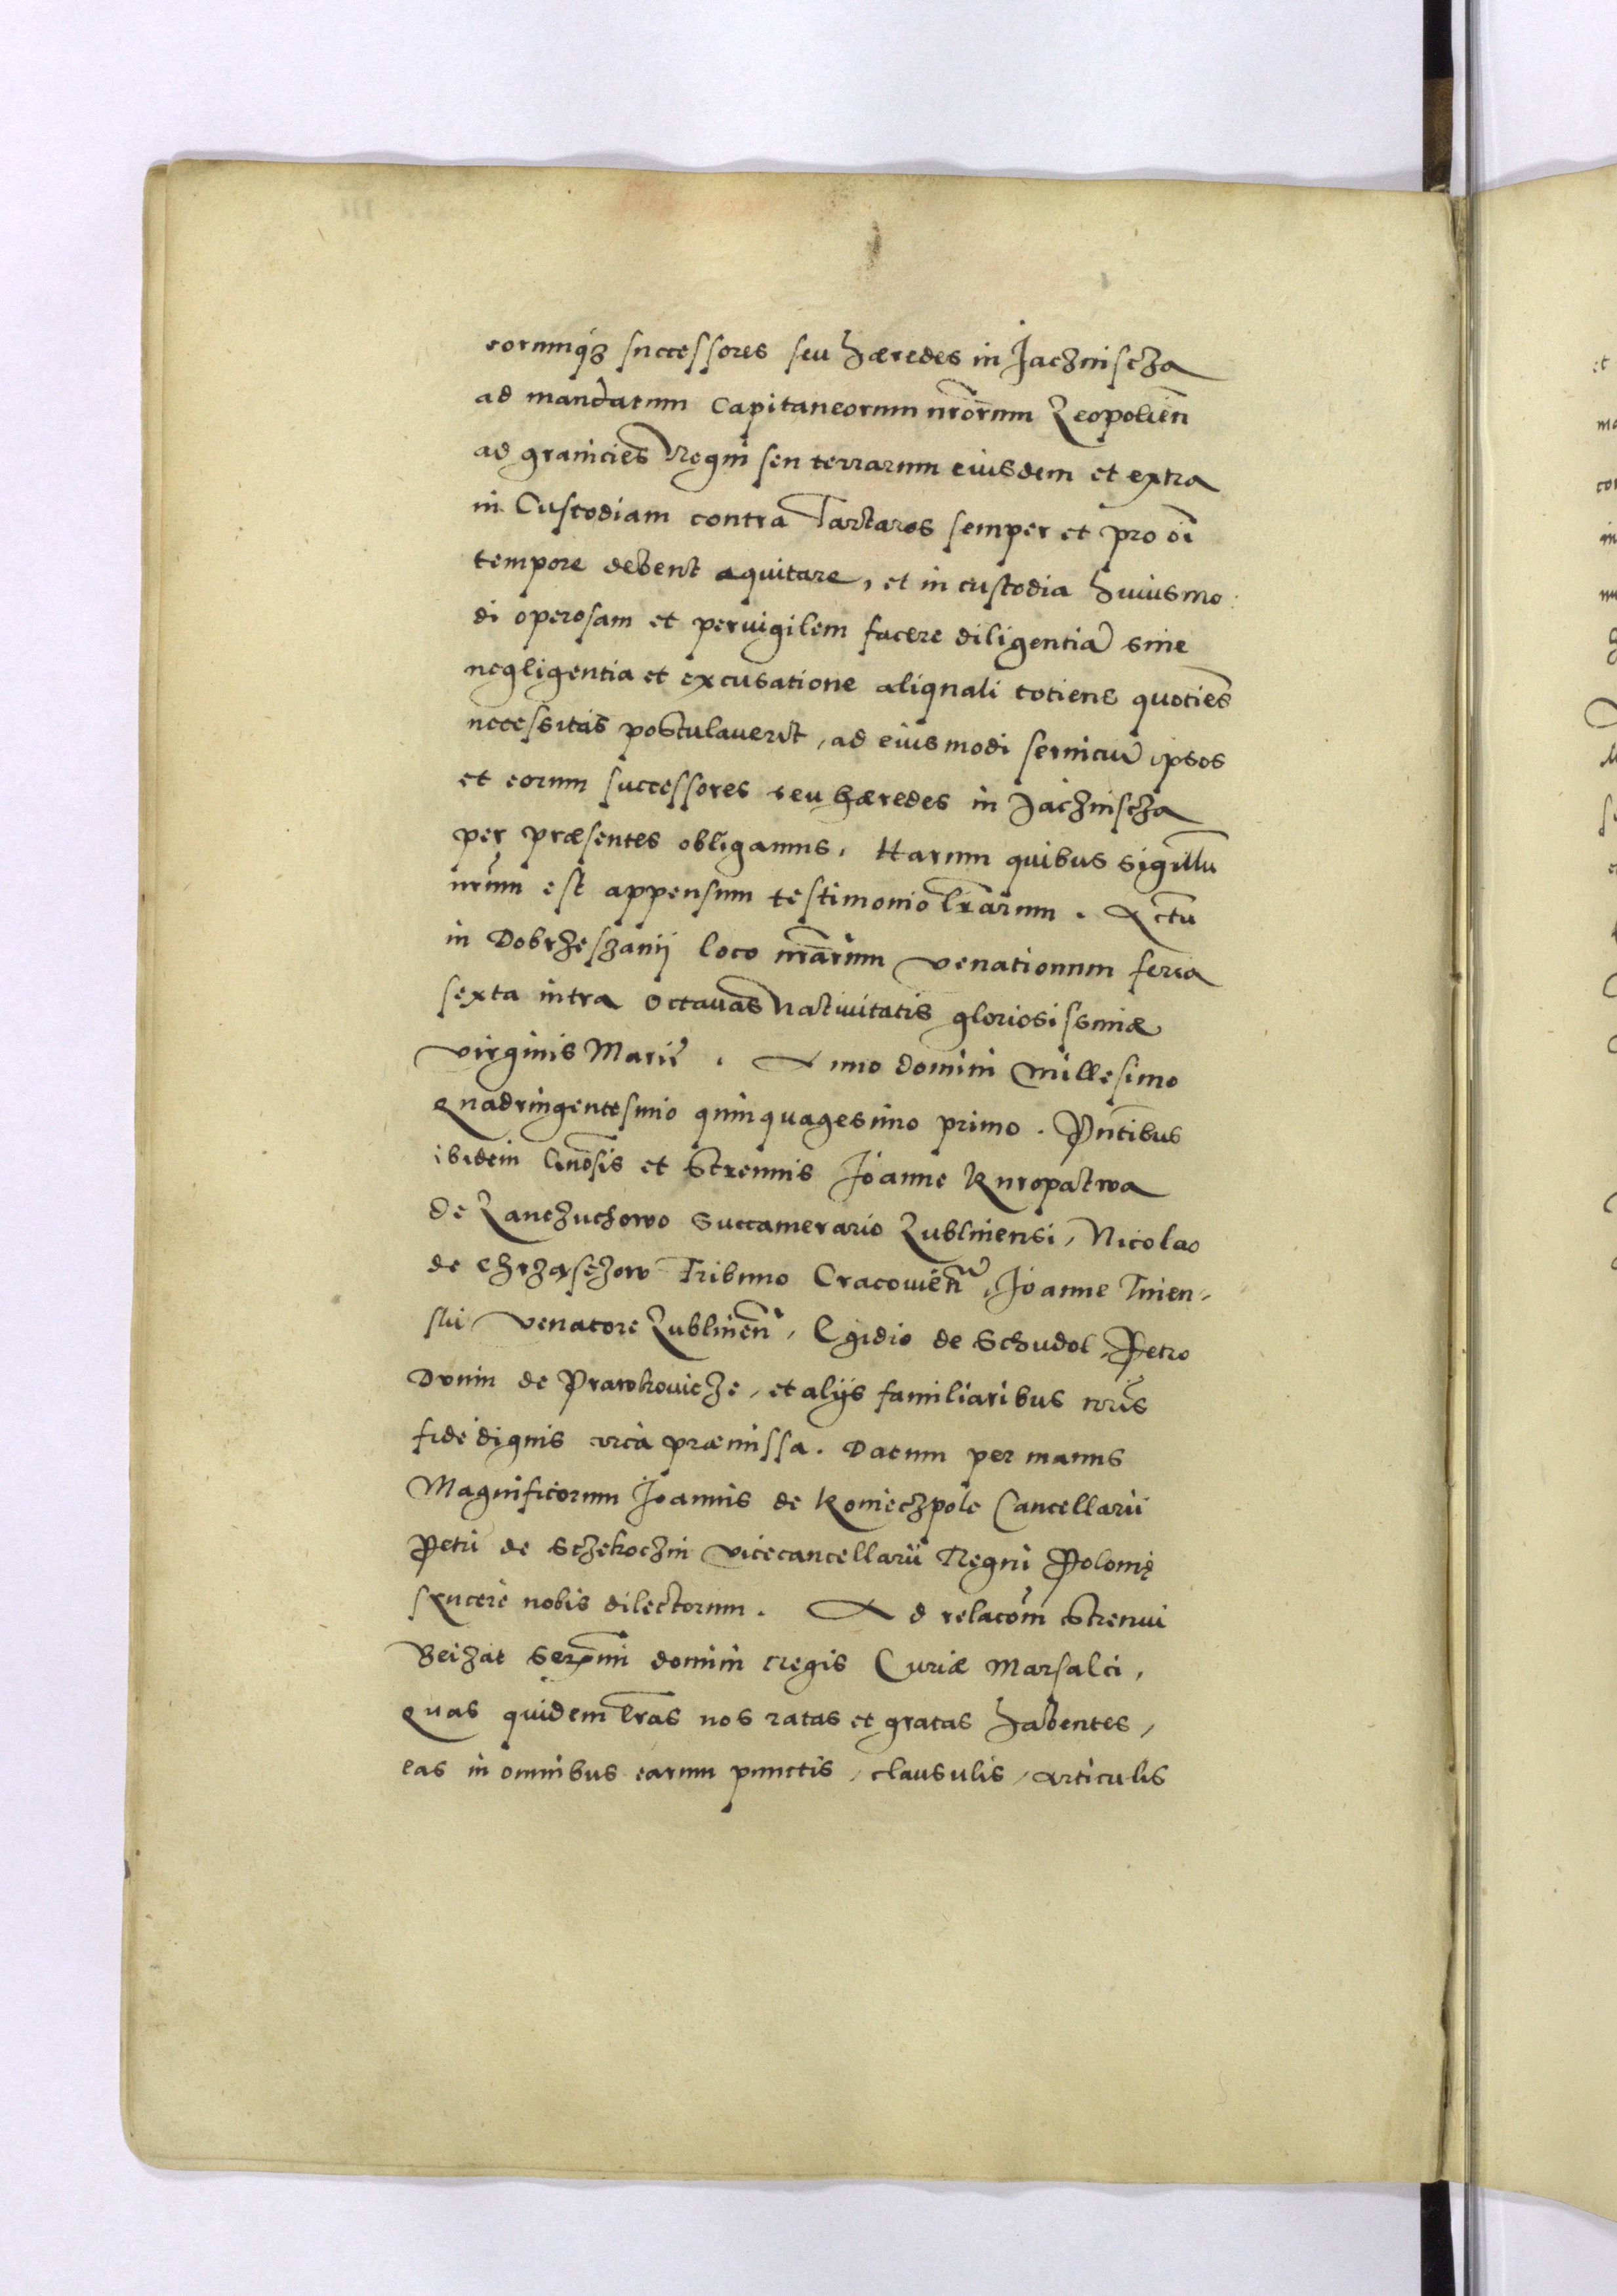 eorumq₃ successores seu hæredes in Jachniſcza
ad mandatum Capitaneorum nr̃orum Leopolien̄
ad granicies Regni seu terrarum eiusdem et extra
in Custodiam contra Tartaros semper et pro oī
tempore debent æquitare, et in custodia huiusmo:
di operosam et peruigilem facere diligentiā sine
negligentia et excusatione aliquali totiens quoties
necessitas postulauerit, ad eiusmodi seruiciū ipsos
et eorum successores seu hæredes in Jachniſcza
per præsentes obligamus. Harum quibus sigillū
nr̃um est appensum testimonio lr̃arum. Actū
in Dobrzeszanij loco nr̃arum venationum feria
sexta intra octauas Natiuitatis gloriosissimæ
virginis Marię. Anno domini Millesimo
Quadringentesimo quinquagesimo primo. Pn̄tibus
ibidem Gn̄osis et Strenuis Joanne Kuropatwa
de Lanczuchowo Succamerario Lublinensi, Nicolao
de Chrząsczow Tribuno Cracouien̄, Joanne Tnien-
ski Venatore Lublinen̄, Egidio de Schudol, Petro
Dunin de Prawkouicze, et alijs familiaribus nr̃is
fidedignis circa præmissa. Datum per manus
Magnificorum Joannis de Koniechpole Cancellarii
Petri de Sczekoczin Vicecancellarii Regni Polonię
syncere nobis dilectorum. Ad relacom̄ Strenui
Beizat Serm̄i domini Regis Curiæ Marsalci,
Quas quidem lr̃as nos ratas et gratas habentes,
eas in omnibus earum punctis, clausulis, articulis